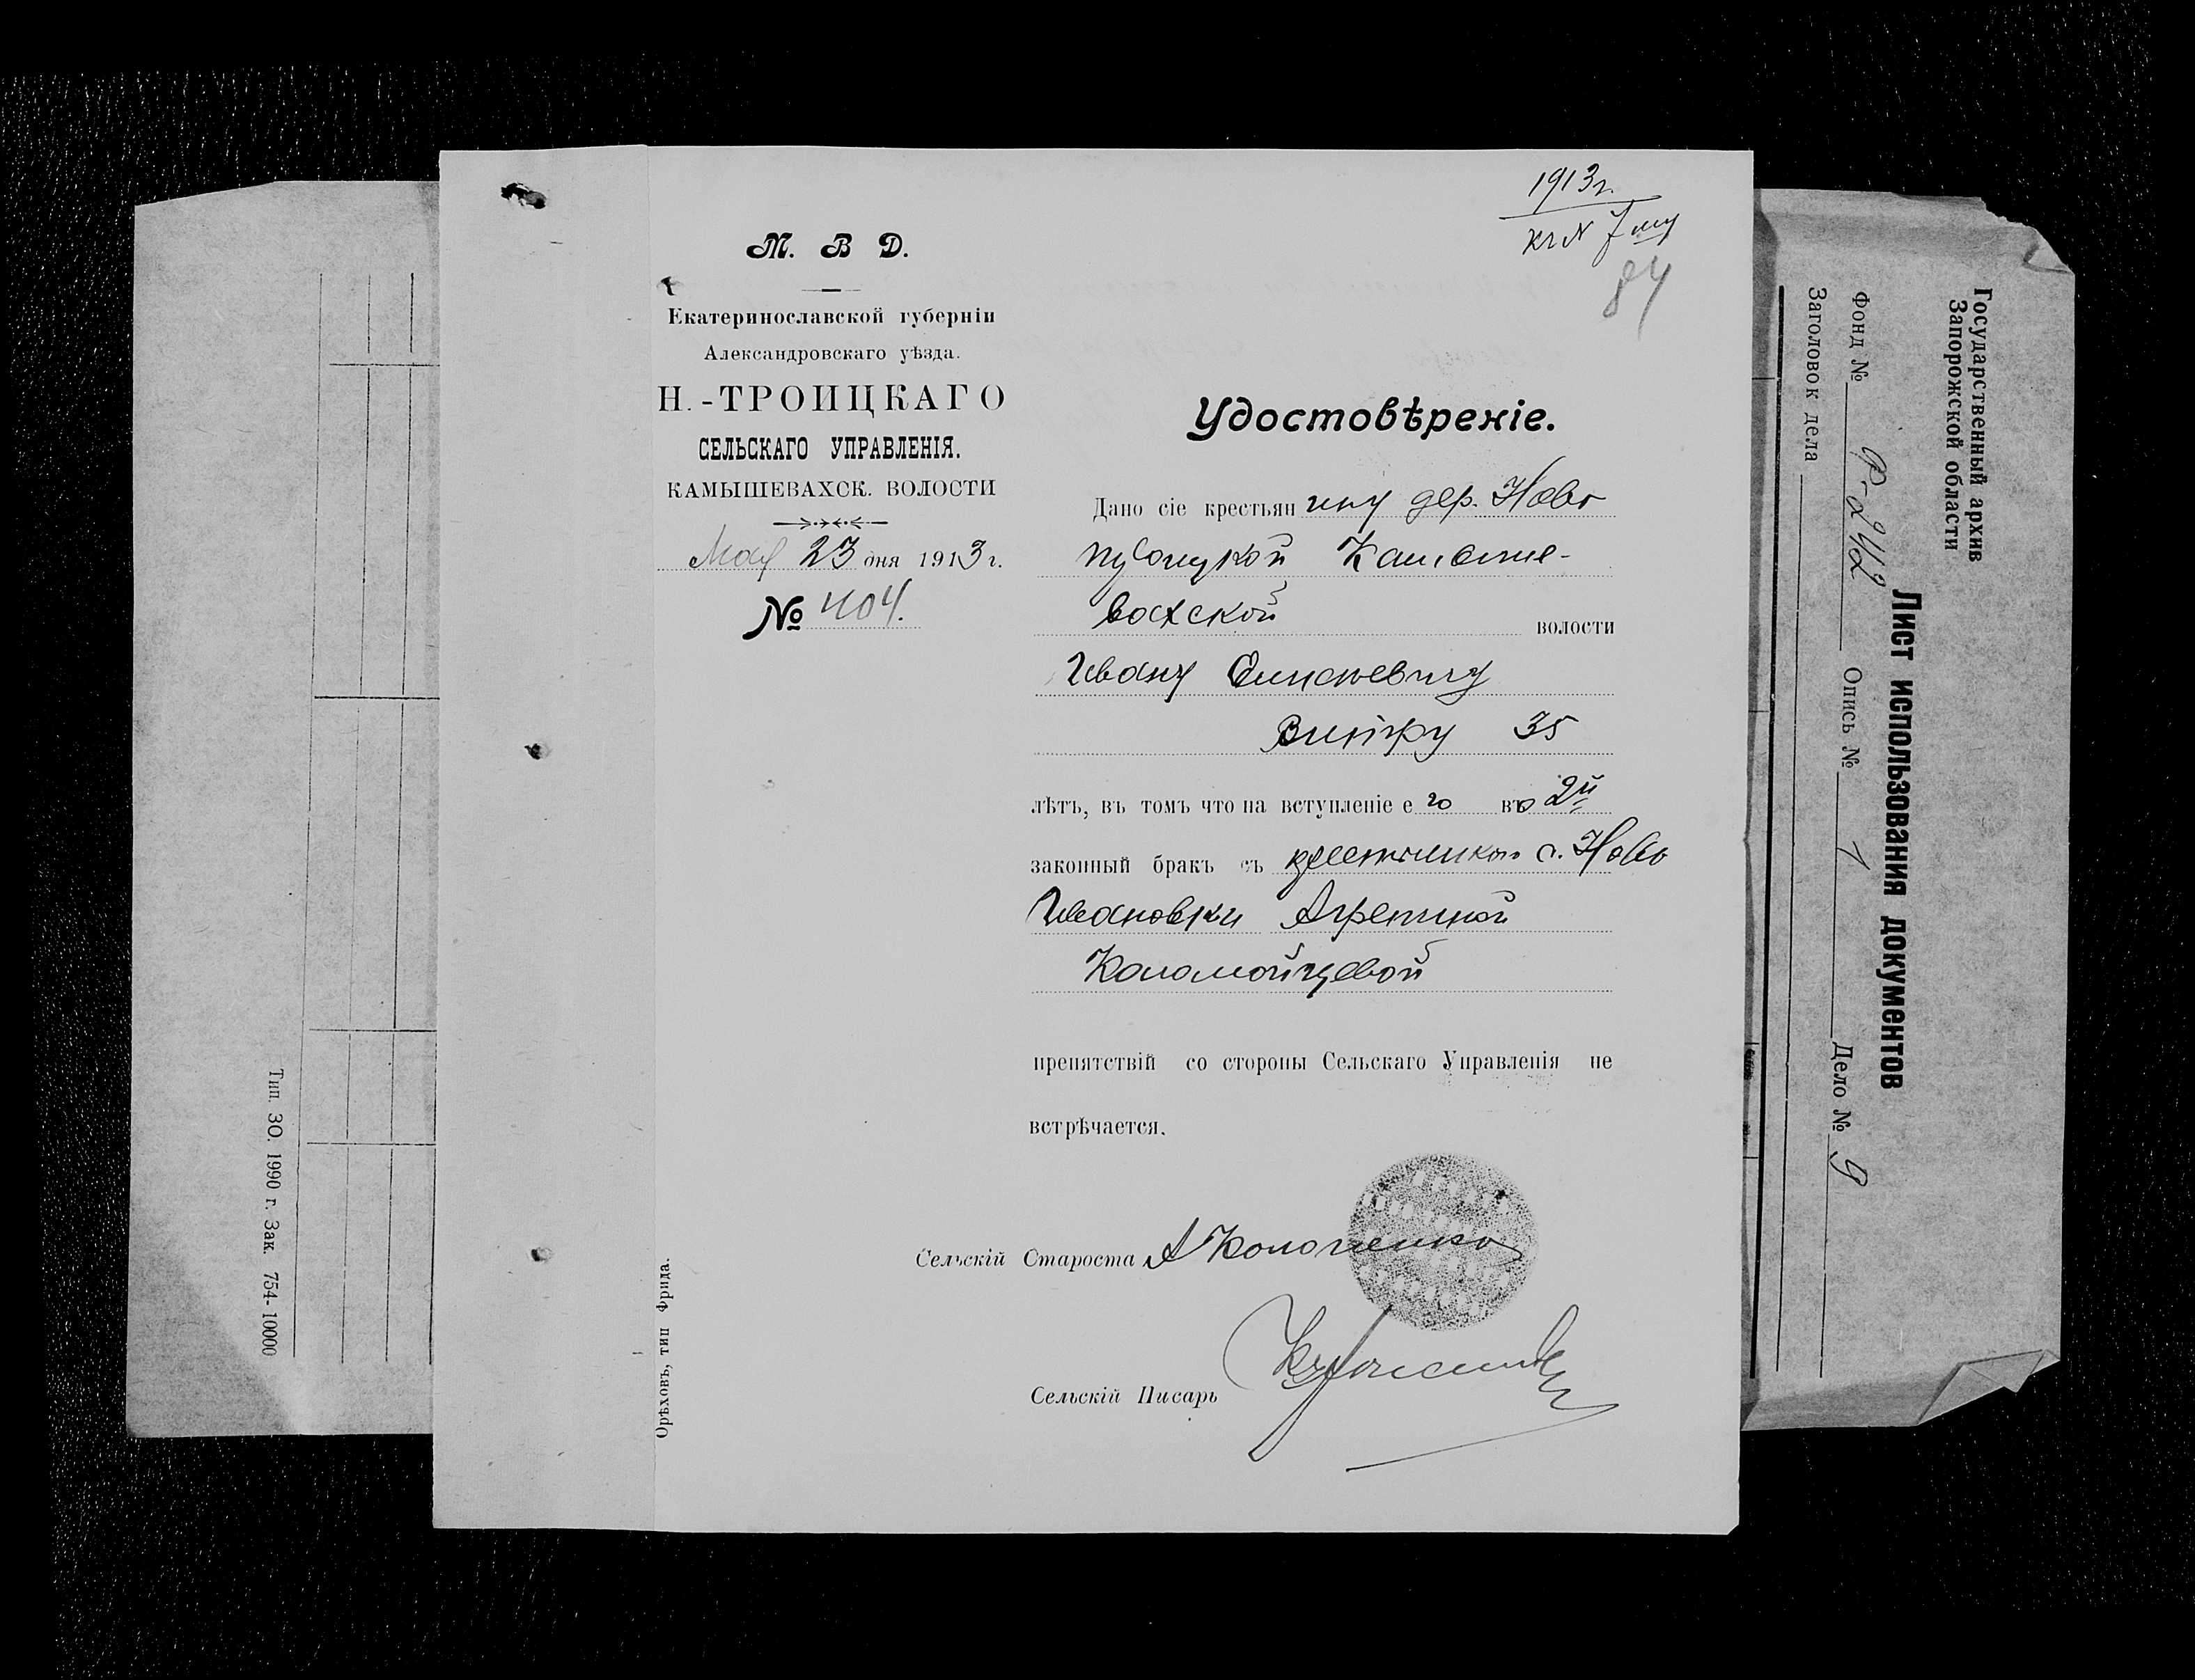 1913 г.
к № 7 му
84
М. В Д.
Екатеринославской губерніи
Александровскаго уѣзда.
Н.-ТРОИЦКАГО
СЕЛЬСКАГО УПРАВЛЕНІЯ.
КАМЫШЕВАХСК. ВОЛОСТИ
Мая 23 дня 1913 г.
№ 404.
Удостовѣреніе.
Дано сіе крестьянину дер. Ново
Камыше-
вахской волости
Ивану
35
лѣтъ, въ томъ что на вступленіе его во 2й
законный бракъ съ с. Ново
Ивановки Агрепиной
Коломойцевой
препятствій со стороны Сельскаго Управленія не
встрѣчается.
Сельскій Староста А
Сельскій Писарь
Орѣховъ, тип Фрида.
Тип. ЗО. 1990 г. Зак. 754-10000
Государственный архив
Запорожской области
Лист использования документов
Фонд № Р-242 Опись № 1 Дело № 9
Заголовок дела